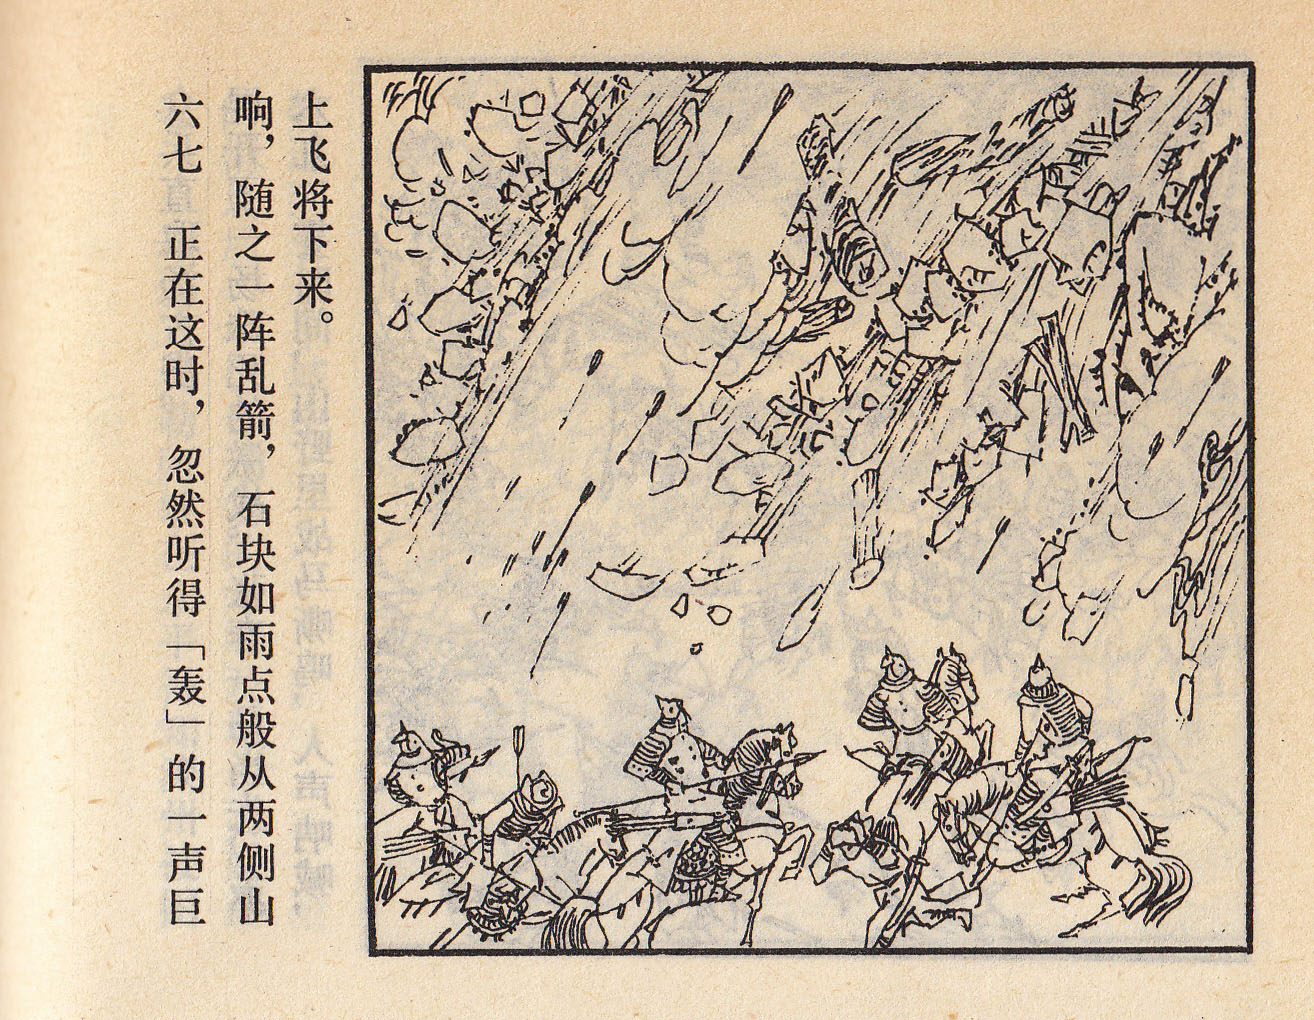 六七 正在这时，忽然听得「轰」的一声巨
响，随之一阵乱箭，石块如雨点般从两侧山
上飞将下来。